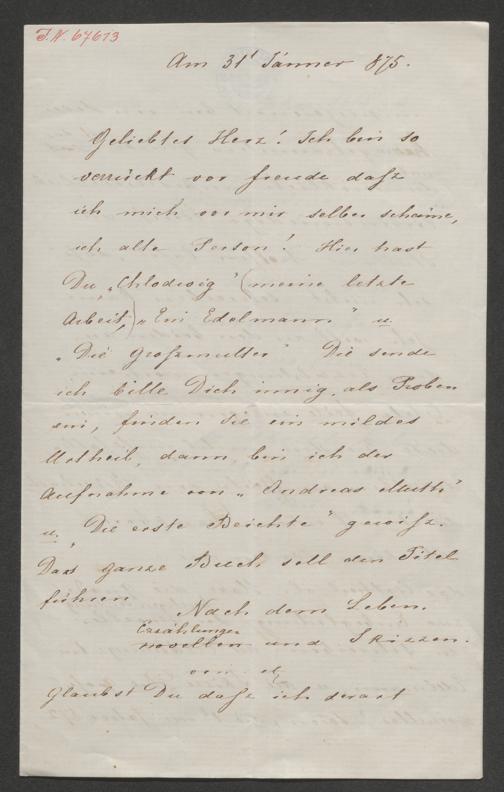 I.N. 67613
Am 31t Jänner 875.
Geliebtes Herz! Ich bin so
verrückt vor freude daßz
ich mich vor mir selber schäme,
ich alte Person! Hier hast
Du „Chlodwig" (meine letzte
Arbeit,) „Ein Edelmann" u
„Die Großzmutter" Die sende
ich bitte Dich innig, als Proben
ein, finden Sie ein mildes
Urtheil, dann bin ich der
Aufnahme von „Andreas Muth"
u. „Die erste Beichte" gewißz.
Das ganze Buch soll den Titel
führen
Nach dem Leben.
Erzählungen
novellen und Skizzen.
von
glaubst Du daßz ich derart